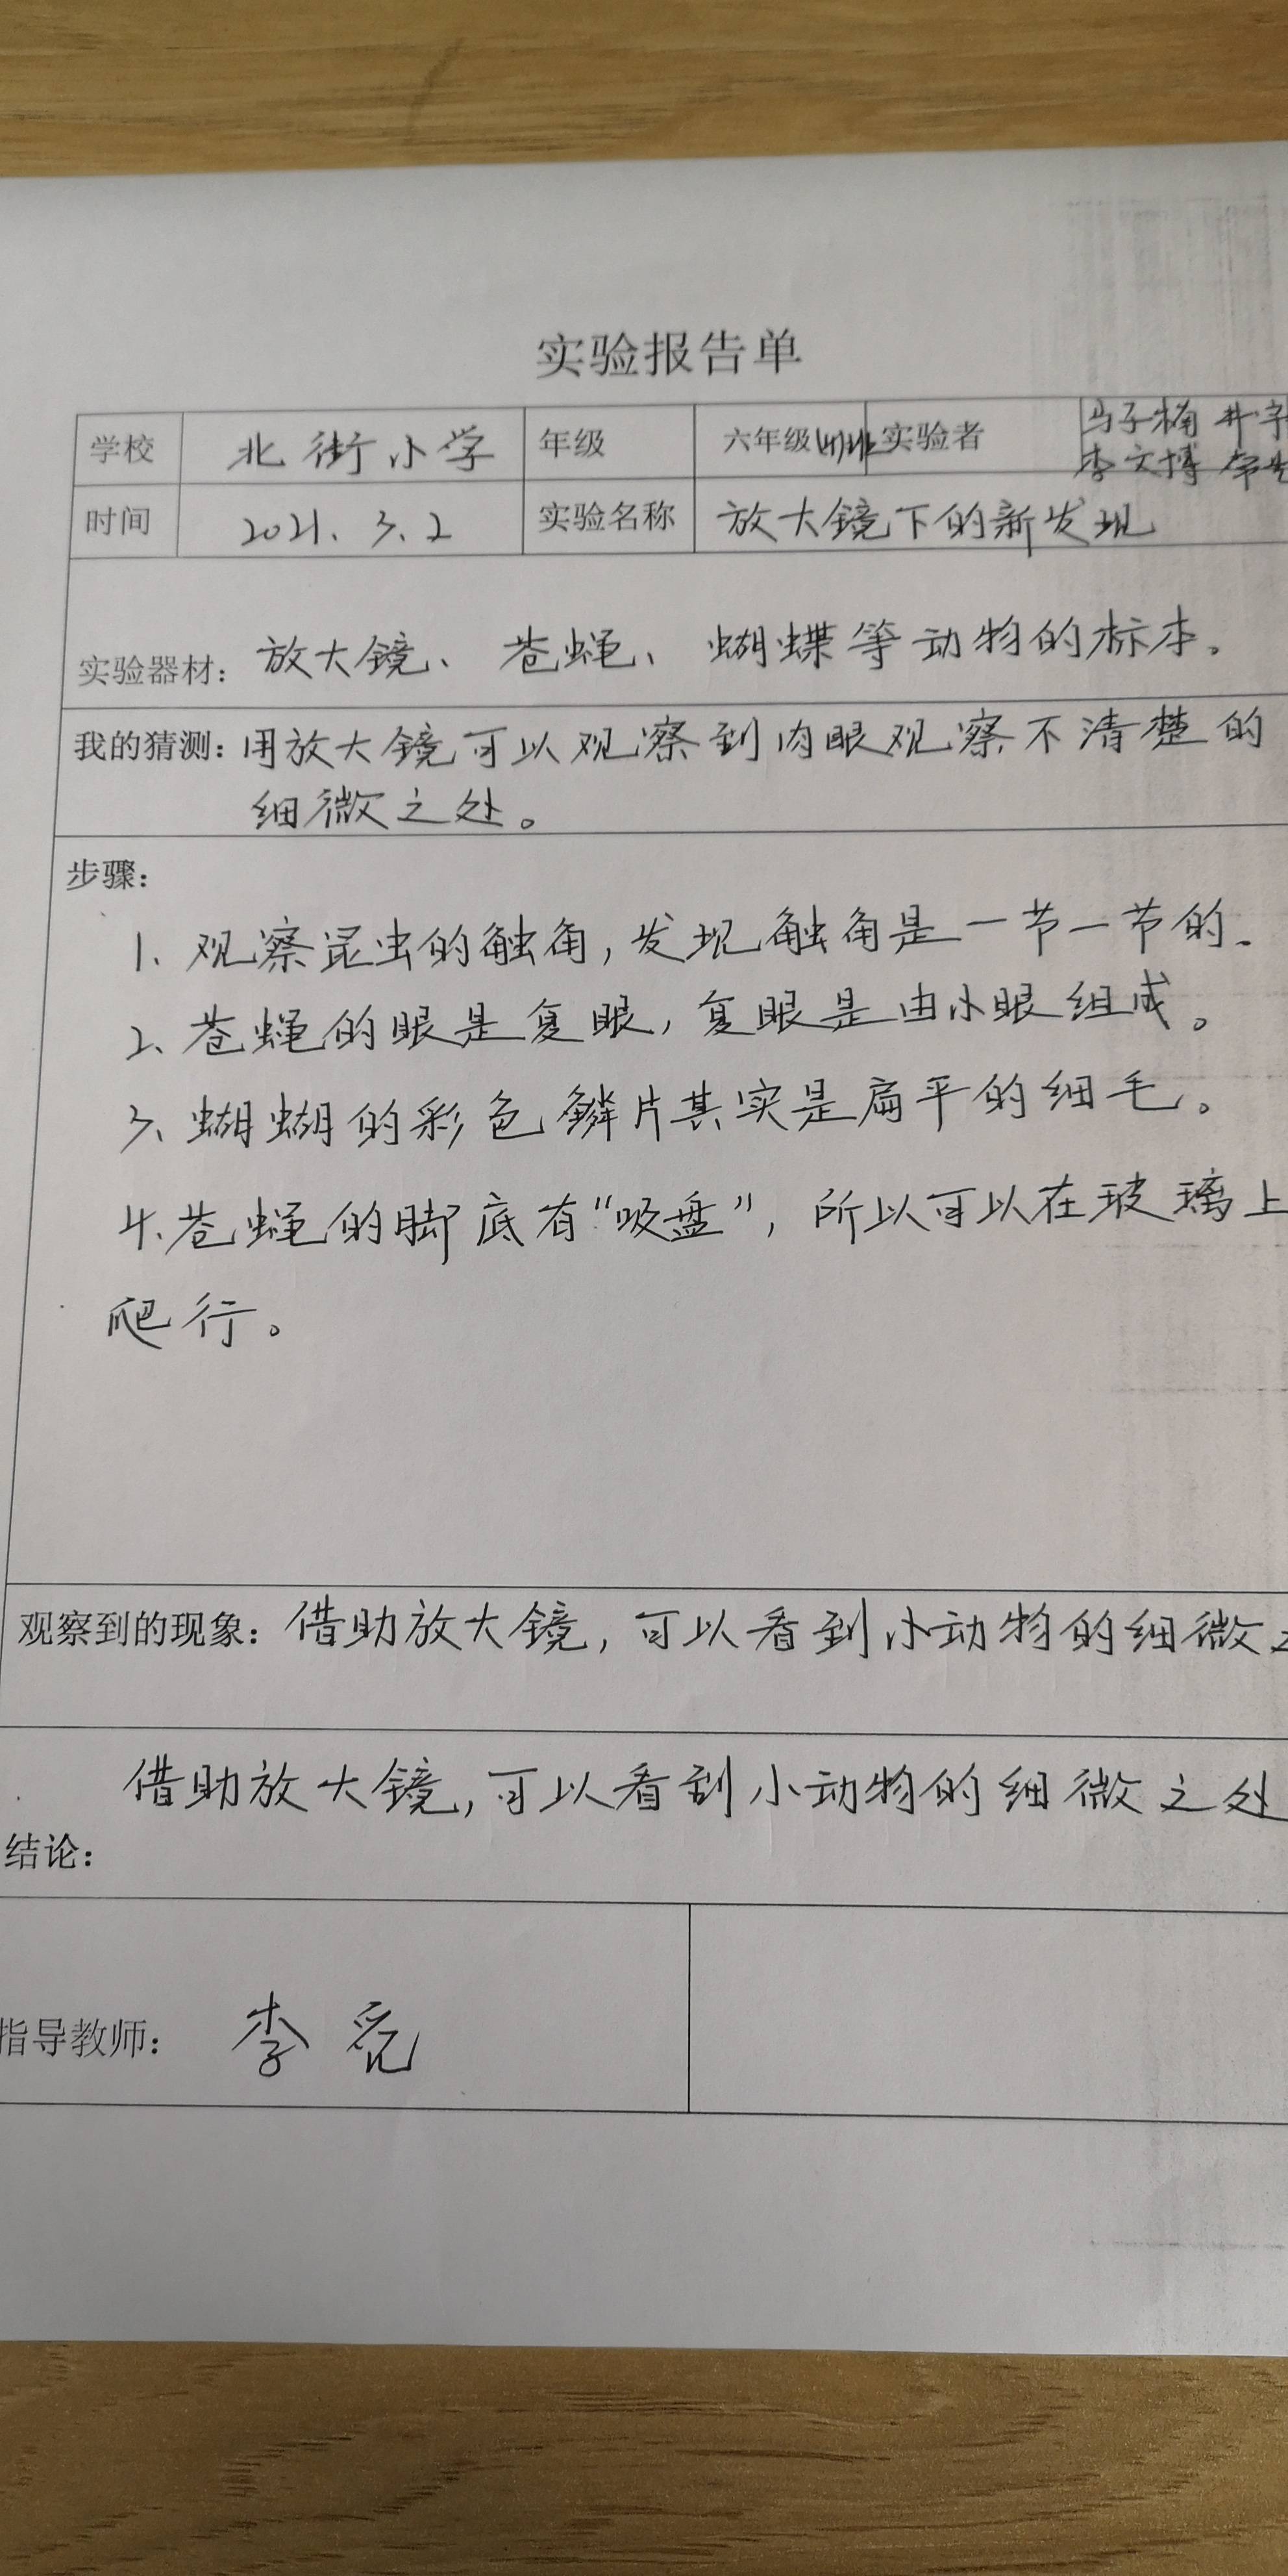 实验报告单
学校 北街小学 年级 六年级(4)班 实验者 马子楠 井宇
李文博
时间 2021.3.2 实验名称 放大镜下的新发现
实验器材：放大镜、苍蝇、蝴蝶等动物的标本。
我的猜测：用放大镜可以观察到肉眼观察不清楚的
细微之处。
步骤：
1、观察昆虫的触角，发现触角是一节一节的。
2、苍蝇的眼是复眼，复眼是由小眼组成。
3、蝴蝴的彩色鳞片其实是扁平的细毛。
4.苍蝇的脚底有“吸盘”，所以可以在玻璃上
爬行。
观察到的现象：借助放大镜，可以看到小动物的细微
借助放大镜，可以看到小动物的细微之处
结论：
指导教师：李